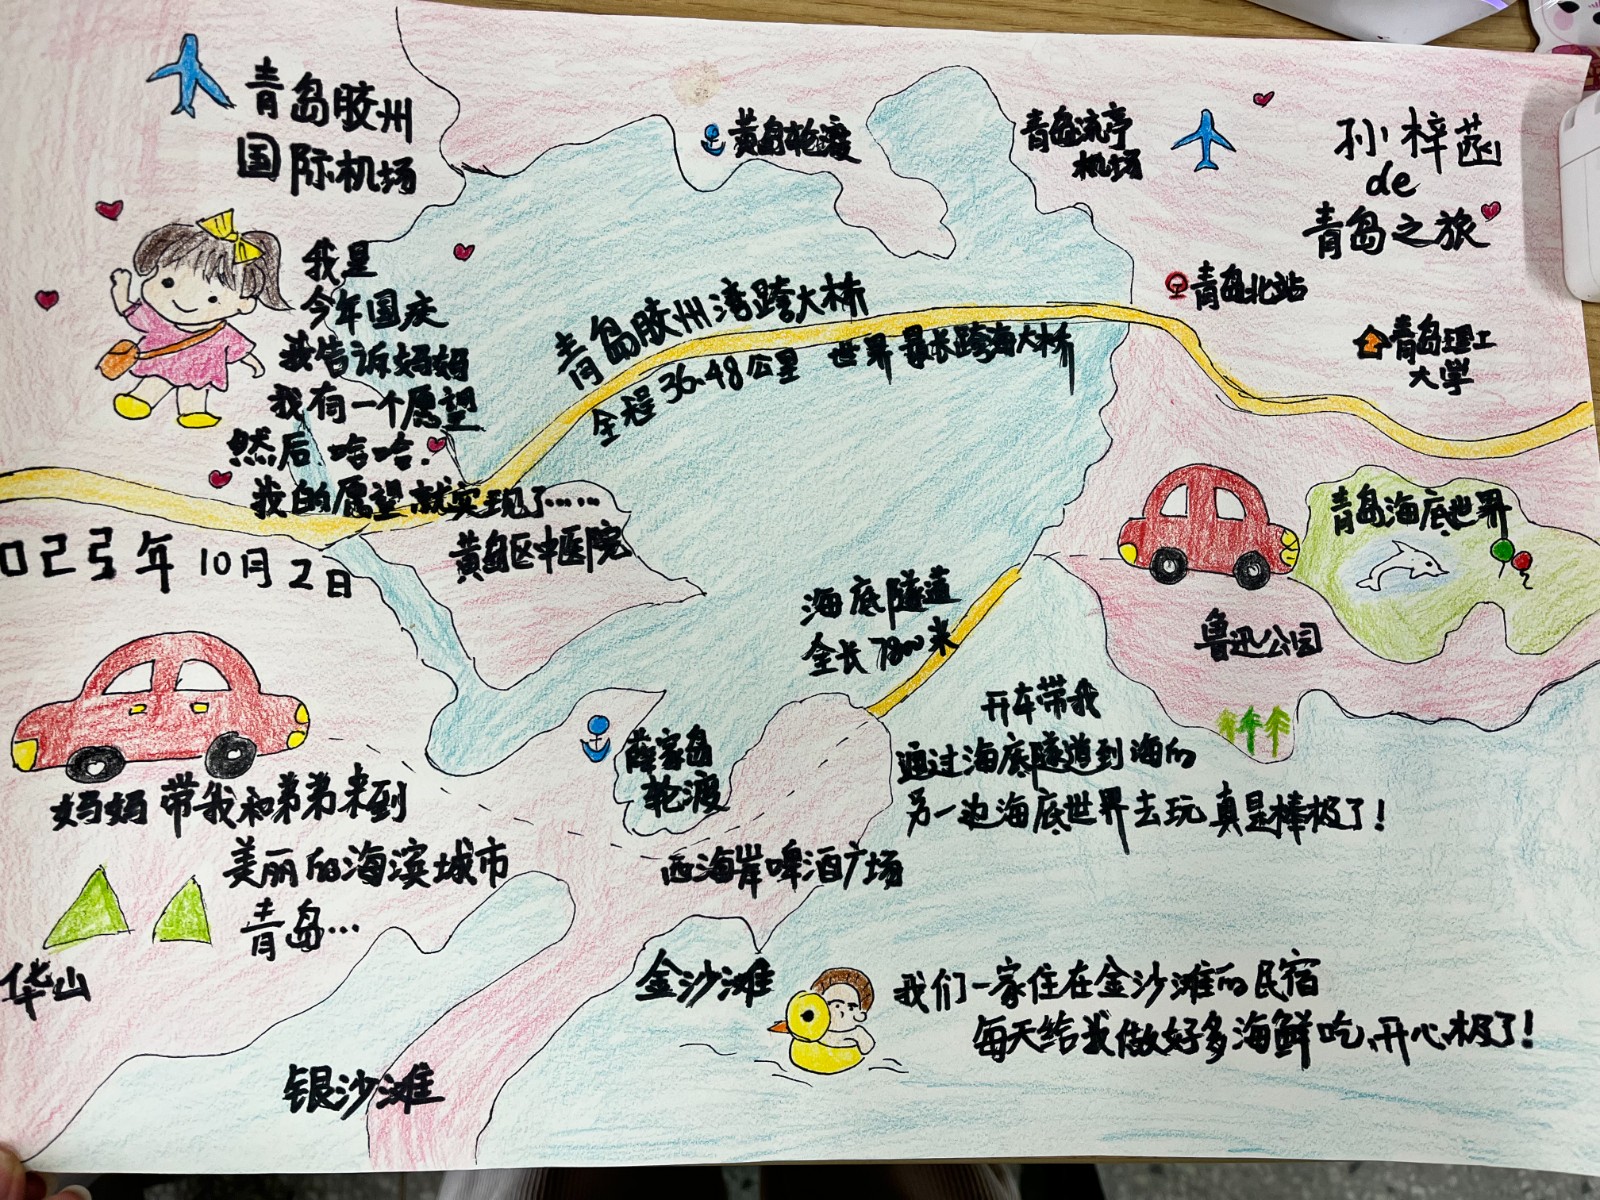 青岛胶州
国际机场
黄岛轮渡
青岛流亭
机场
孙梓菡
de
青岛之旅
我是
今年国庆
我告诉妈妈
我有一个愿望
然后.哈哈.
我的愿望就实现了……
青岛胶州湾跨大桥
全程36.48公里 世界最长跨海大桥
青岛北站
青岛理工
大学
023年10月2日
黄岛区中医院
青岛海底世界
海底隧道
全长7800米
鲁迅公园
妈妈带我和弟弟来到
美丽的海滨城市
青岛…
薛家岛
轮渡
开车带我
通过海底隧道到海的
另一边海底世界去玩真是棒极了!
西海岸啤酒广场
华山
金沙滩
我们一家住在金沙滩的民宿
每天给我做好多海鲜吃、开心极了!
银沙滩